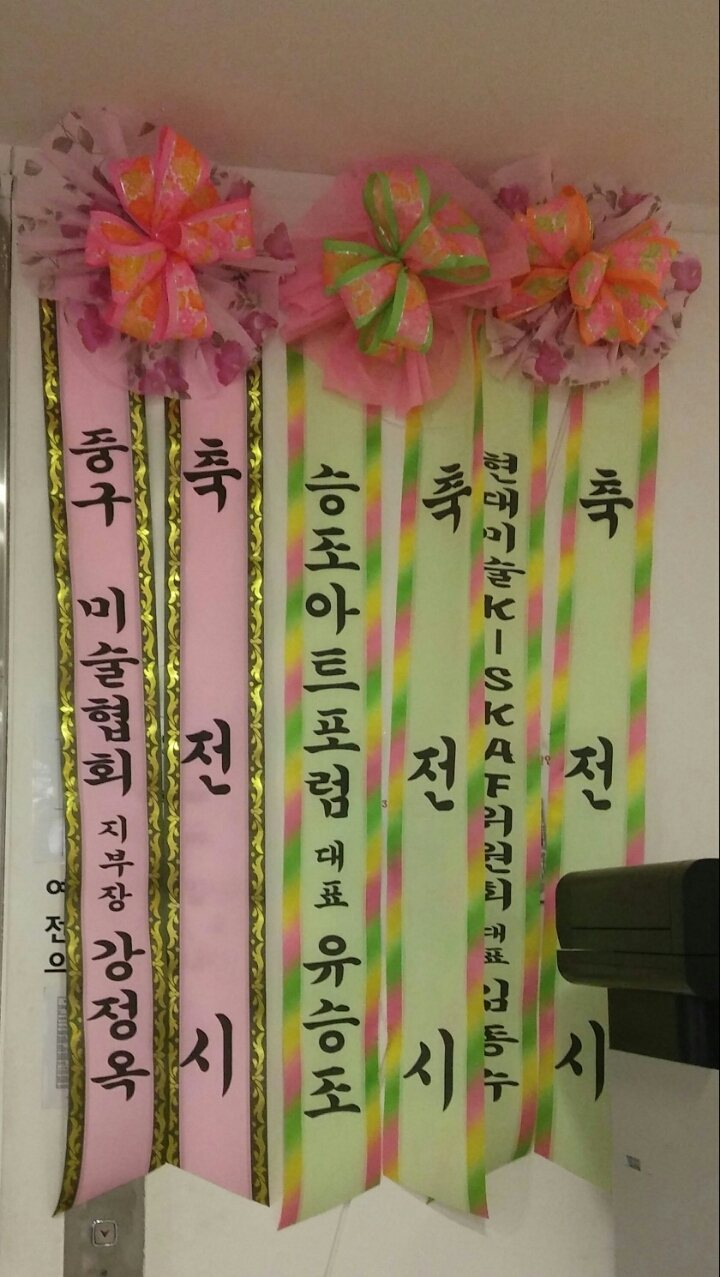 중구 미술협회 지부장 강정옥
축 전 시
승조아트포럼 대표 유승조
축 전 시
현대미술KISKAF위원회 대표 임동수
축 전 시
전